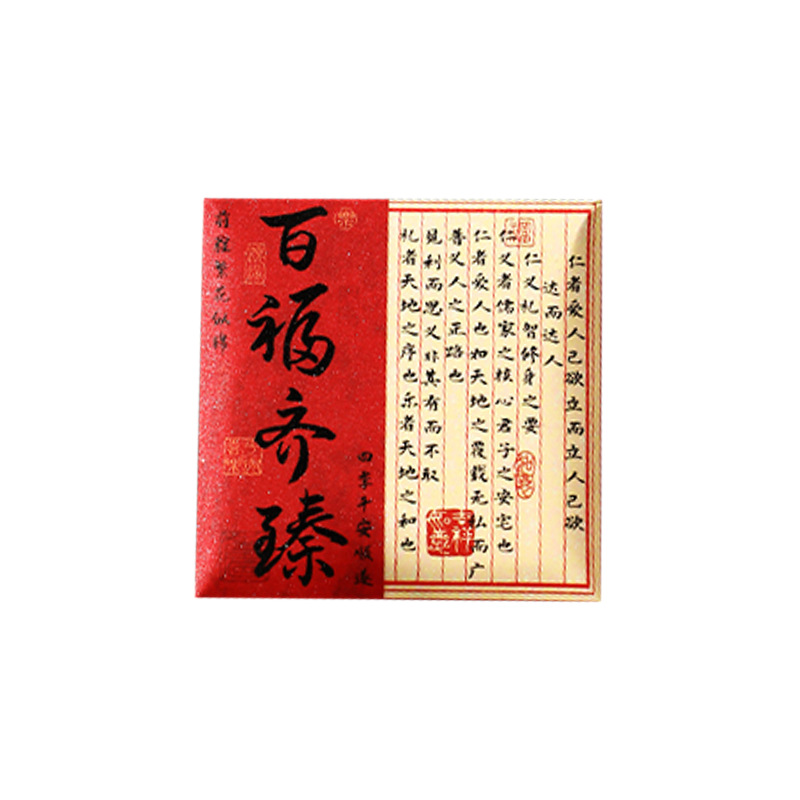 百福齐臻
前程繁花似锦
四季平安顺遂
仁者爱人己欲立而立人己欲
达而达人
仁义礼智修身之要
仁义者儒家之核心君子之安宅也
仁者爱人也如天地之覆载无私而广
普义人之正路也
见利而思义非其有而不取
礼者天地之序也乐者天地之和也
吉祥